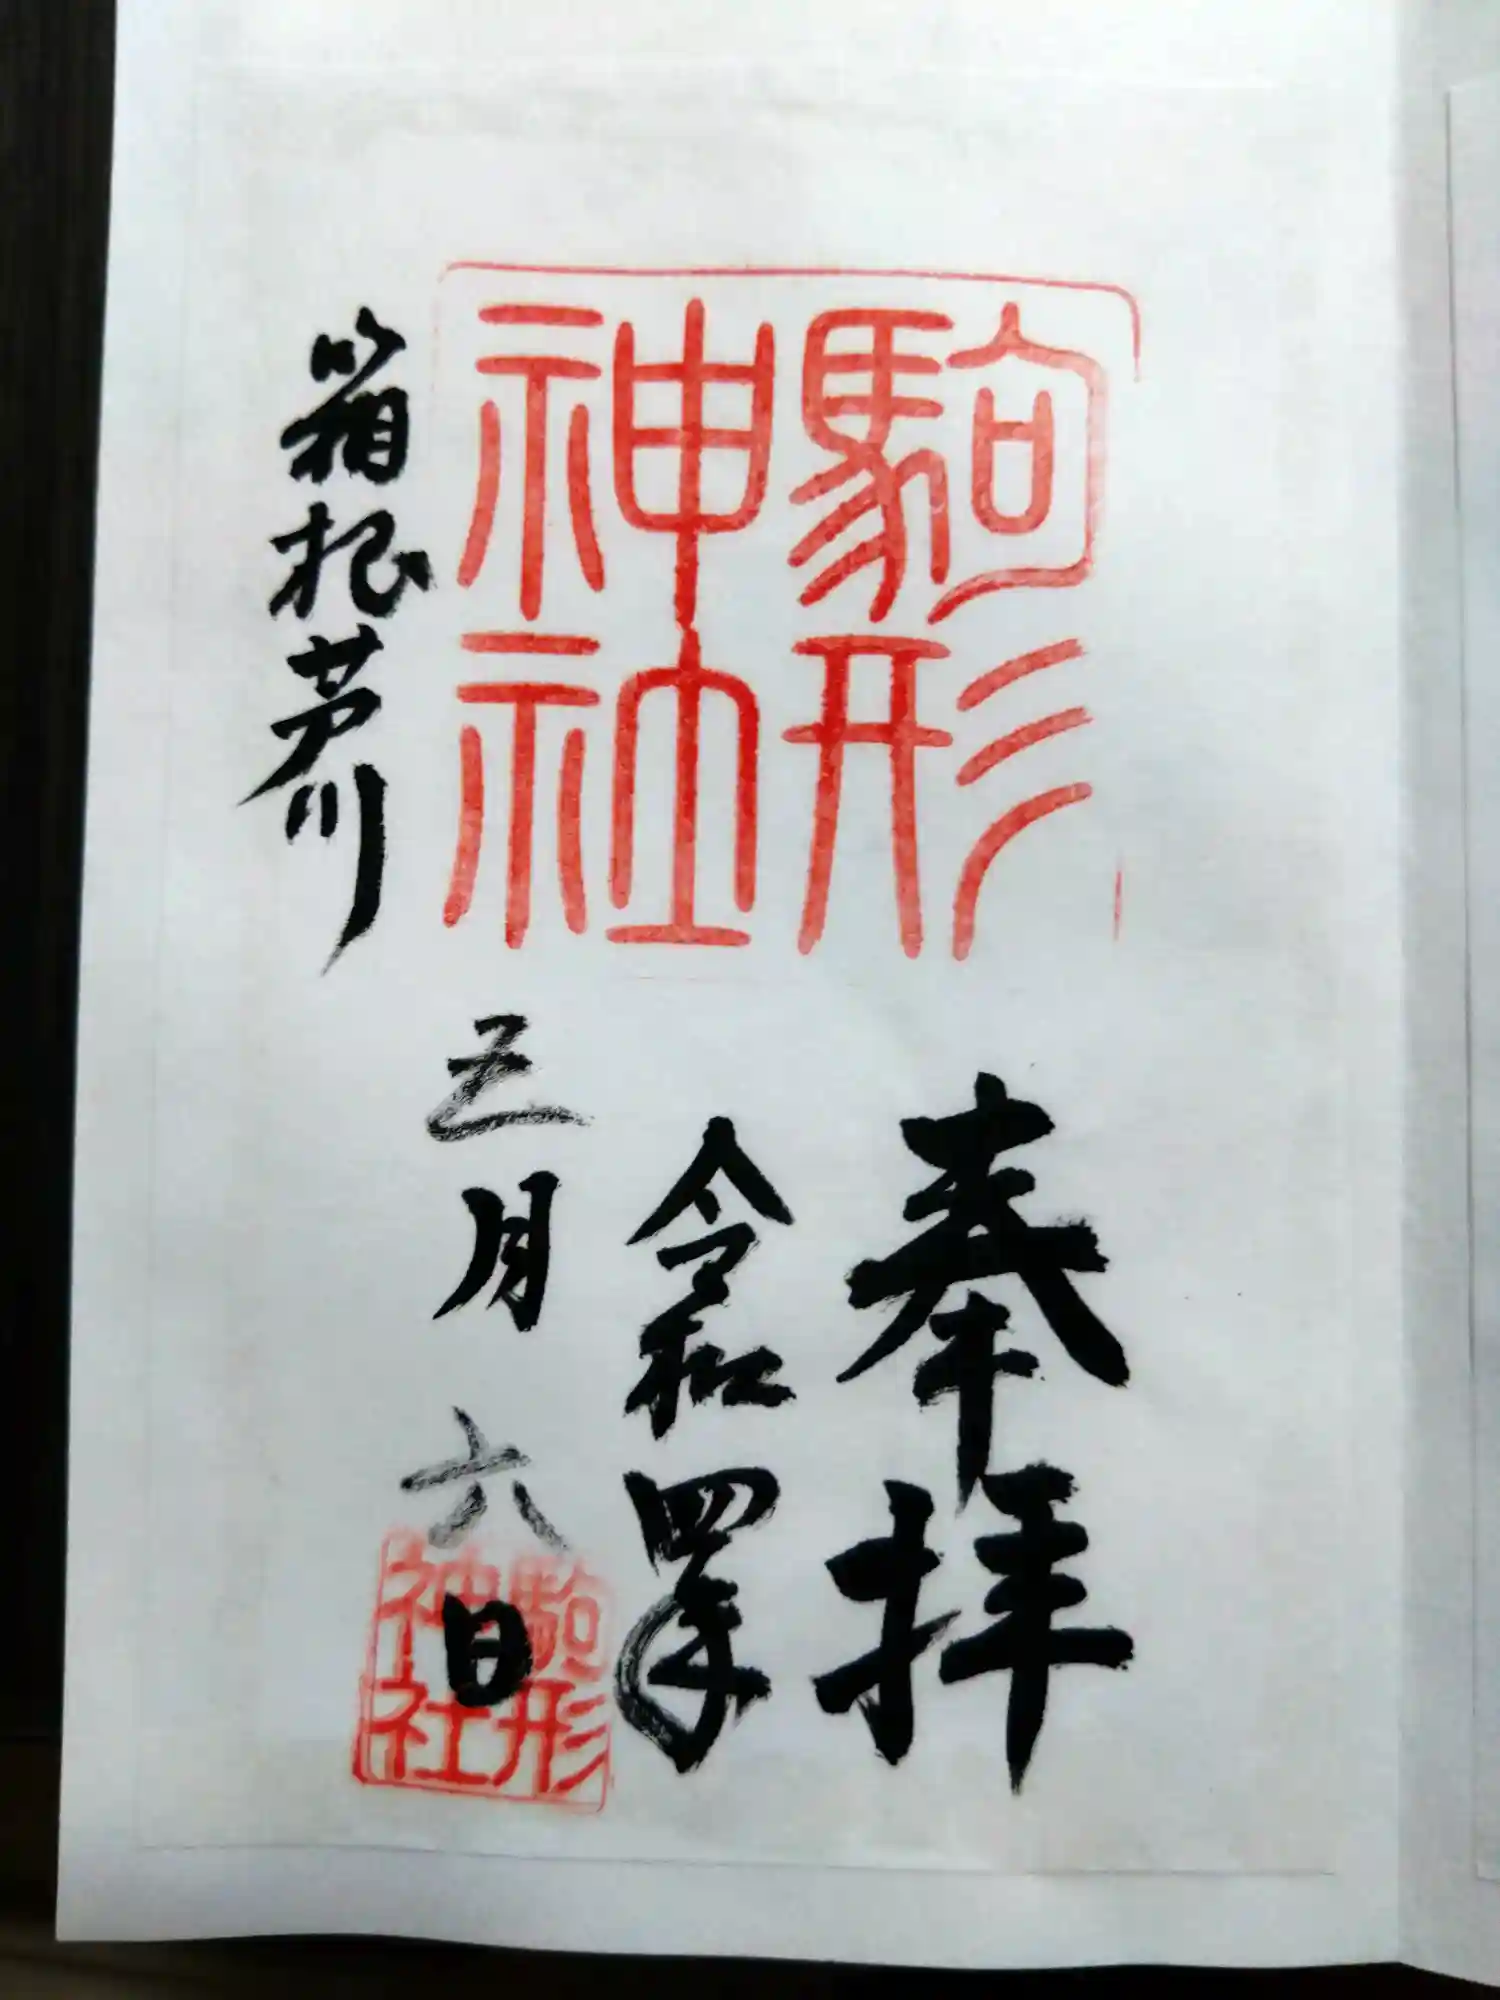 奉拝
駒形
神社
令和四年
三月六日
箱根芦川
駒形
神社